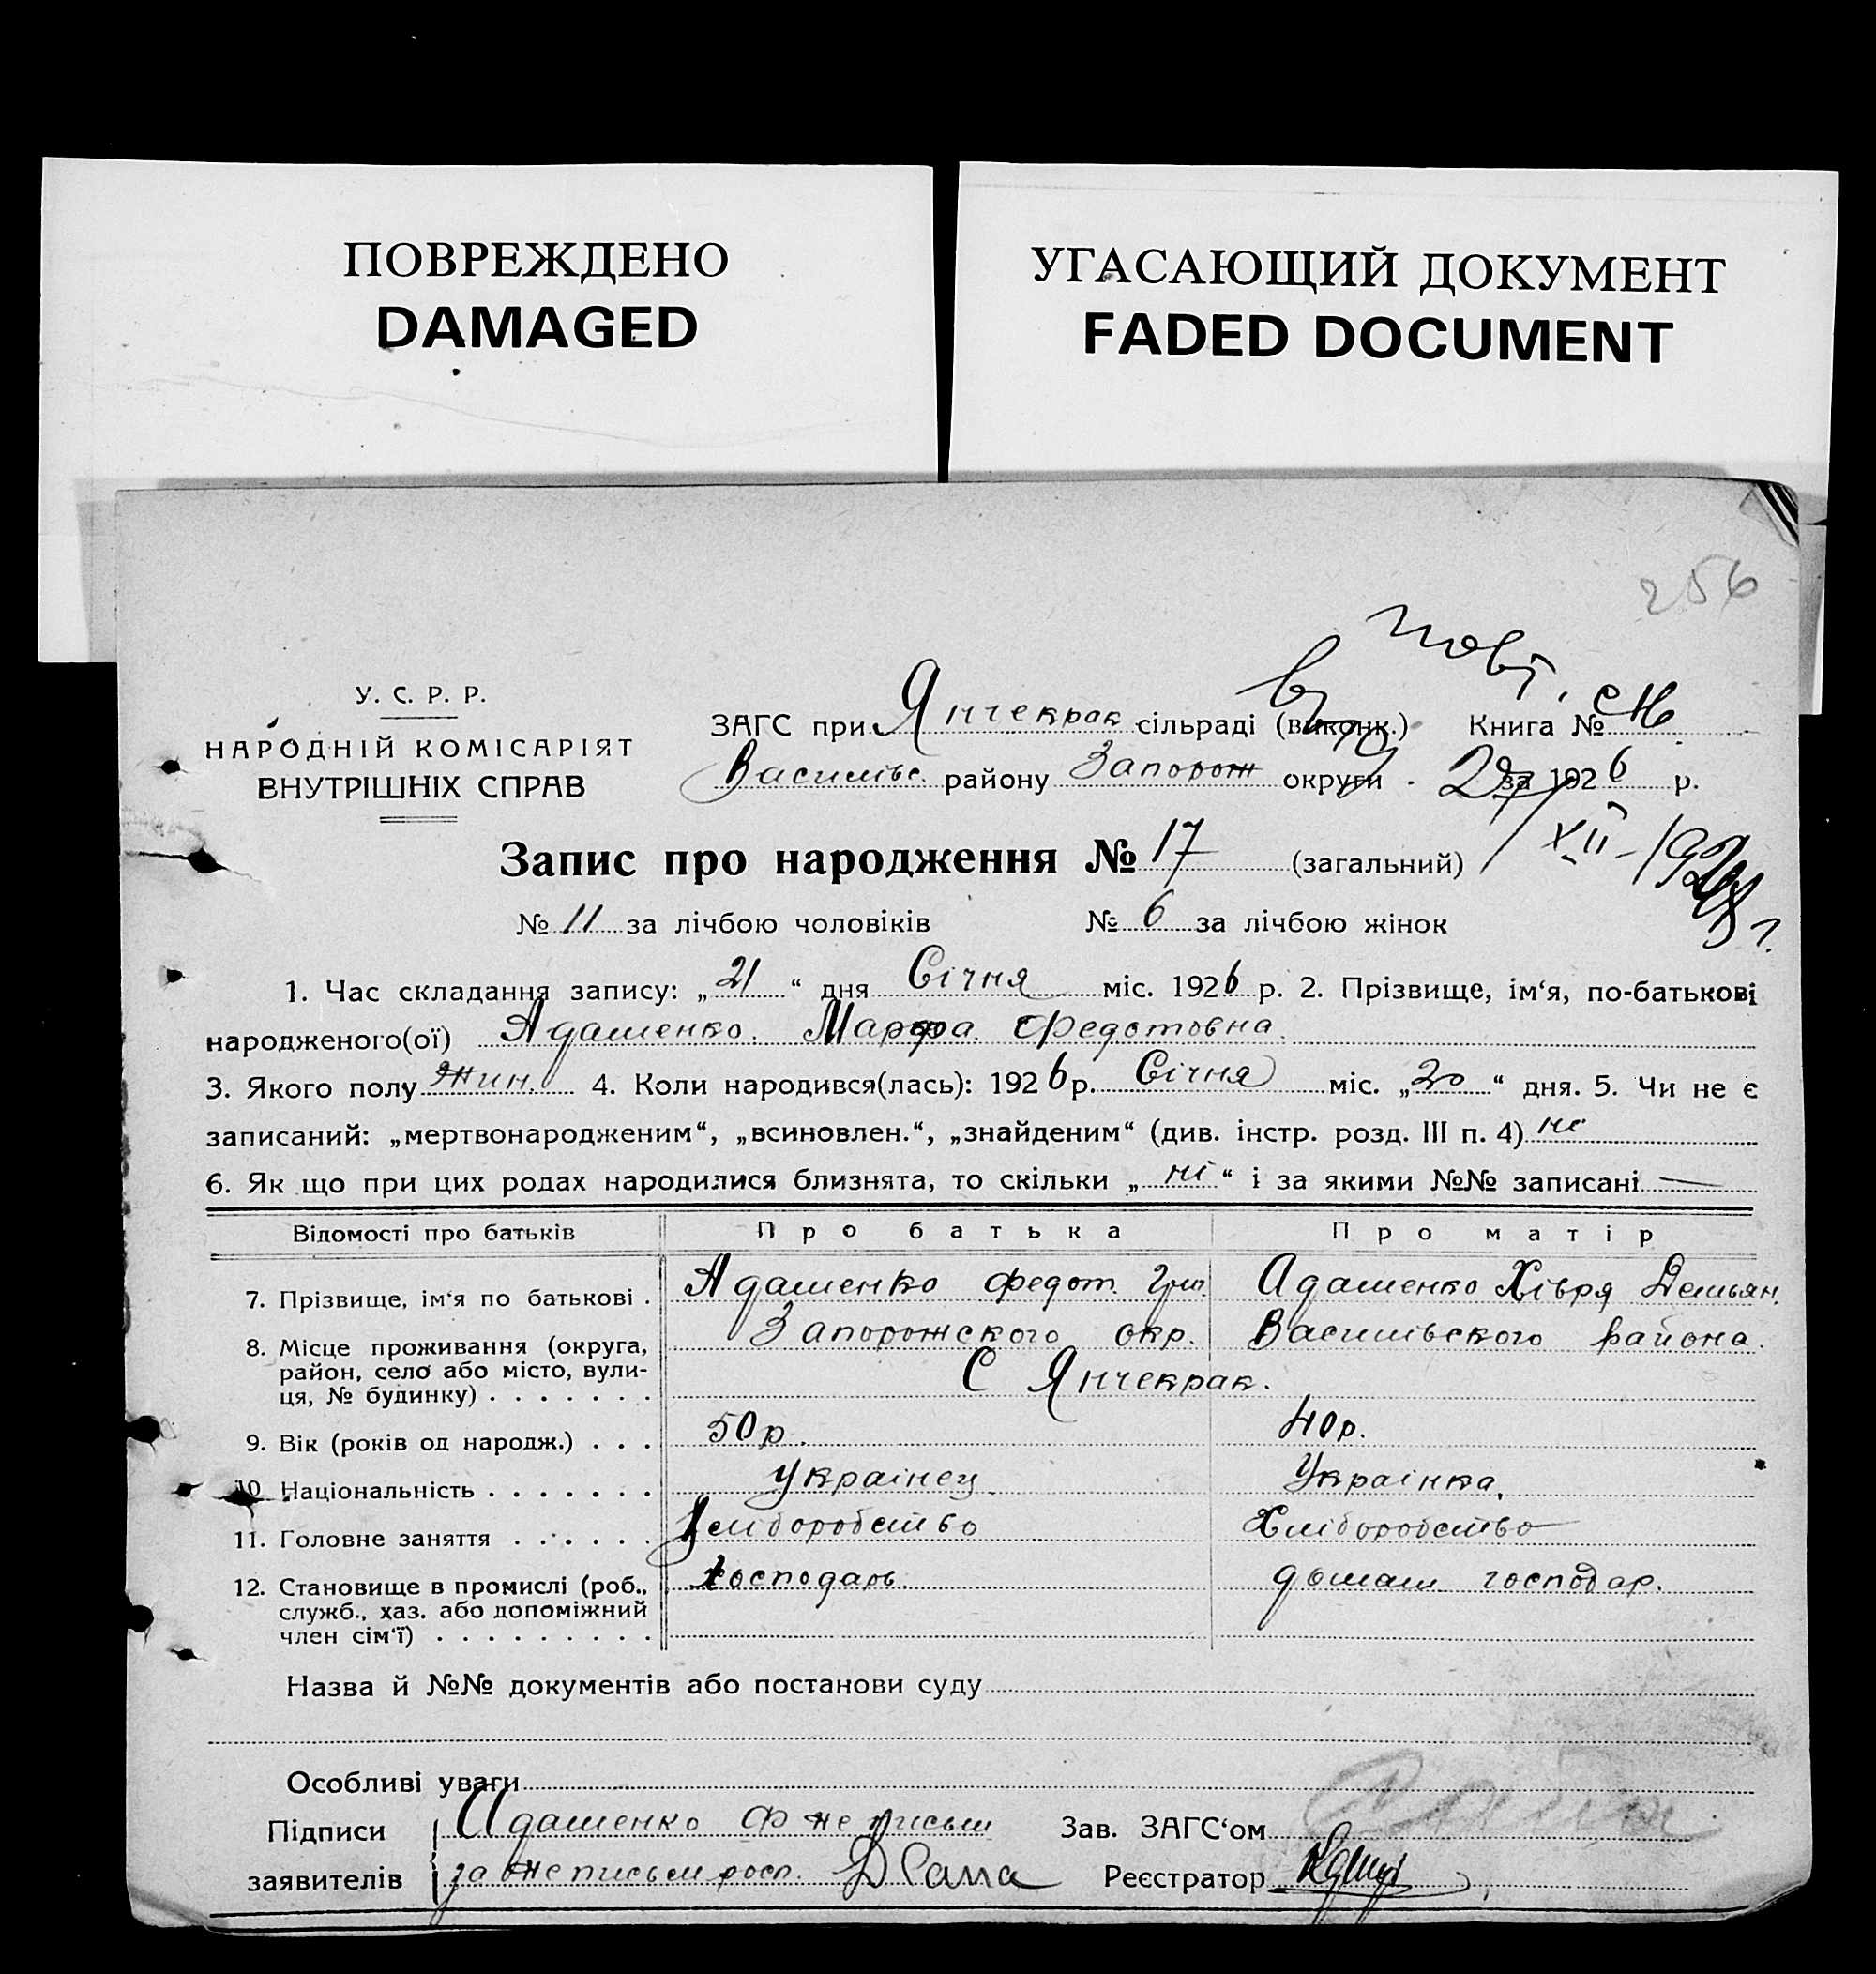 ПОВРЕЖДЕНО
DAMAGED
УГАСАЮЩИЙ ДОКУМЕНТ
FADED DOCUMENT
256
У. С. Р. Р.
НАРОДНІЙ КОМІСАРІЯТ
ВНУТРІШНІХ СПРАВ
ЗАГС при Янчекрак сільраді (виконк.) Книга №
Василівс. району Запорож округи за 1926 р.
Запис про народження № 17 (загальний)
№ 11 за лічбою чоловіків № 6 за лічбою жінок
1. Час складання запису: „21“ дня Січня міс. 1926 р. 2. Прізвище, ім‘я, по-батькові
народженого(ої) Адашенко. Марфа Федотовна
3. Якого полу Жин. 4. Коли народився(лась): 1926 р. Січня міс. „20“ дня. 5. Чи не є
записаний: „мертвонародженим“, „всиновлен.“, „знайденим“ (див. інстр. розд. III п. 4) не
6. Як що при цих родах народилися близнята, то скільки „ні“ і за якими №№ записані —
Відомості про батьків Про батька Про матір
7. Прізвище, ім‘я по батькові . Адашенко Федот. Гри. Адашенко Хівря Демьян.
8. Місце проживання (округа, Запорожского окр. Василівського района.
район, село або місто, вули- С Янчекрак.
ця, № будинку) . . . . . . .
9. Вік (років од народж.) . . . 50р. 40р.
10. Національність . . . . . . . Украінец. Украінка.
11. Головне заняття . . . . . . Хліборобство Хліборобство
12. Становище в промислі (роб., Господарь. домаш господар.
служб., хаз. або допоміжний
член сім‘ї) . . . . . . . . .
Назва й №№ документів або постанови суду
Особливі уваги
Підписи Адашенко Ф не письм Зав. ЗАГС‘ом
заявителів за не письм росп. Реєстратор